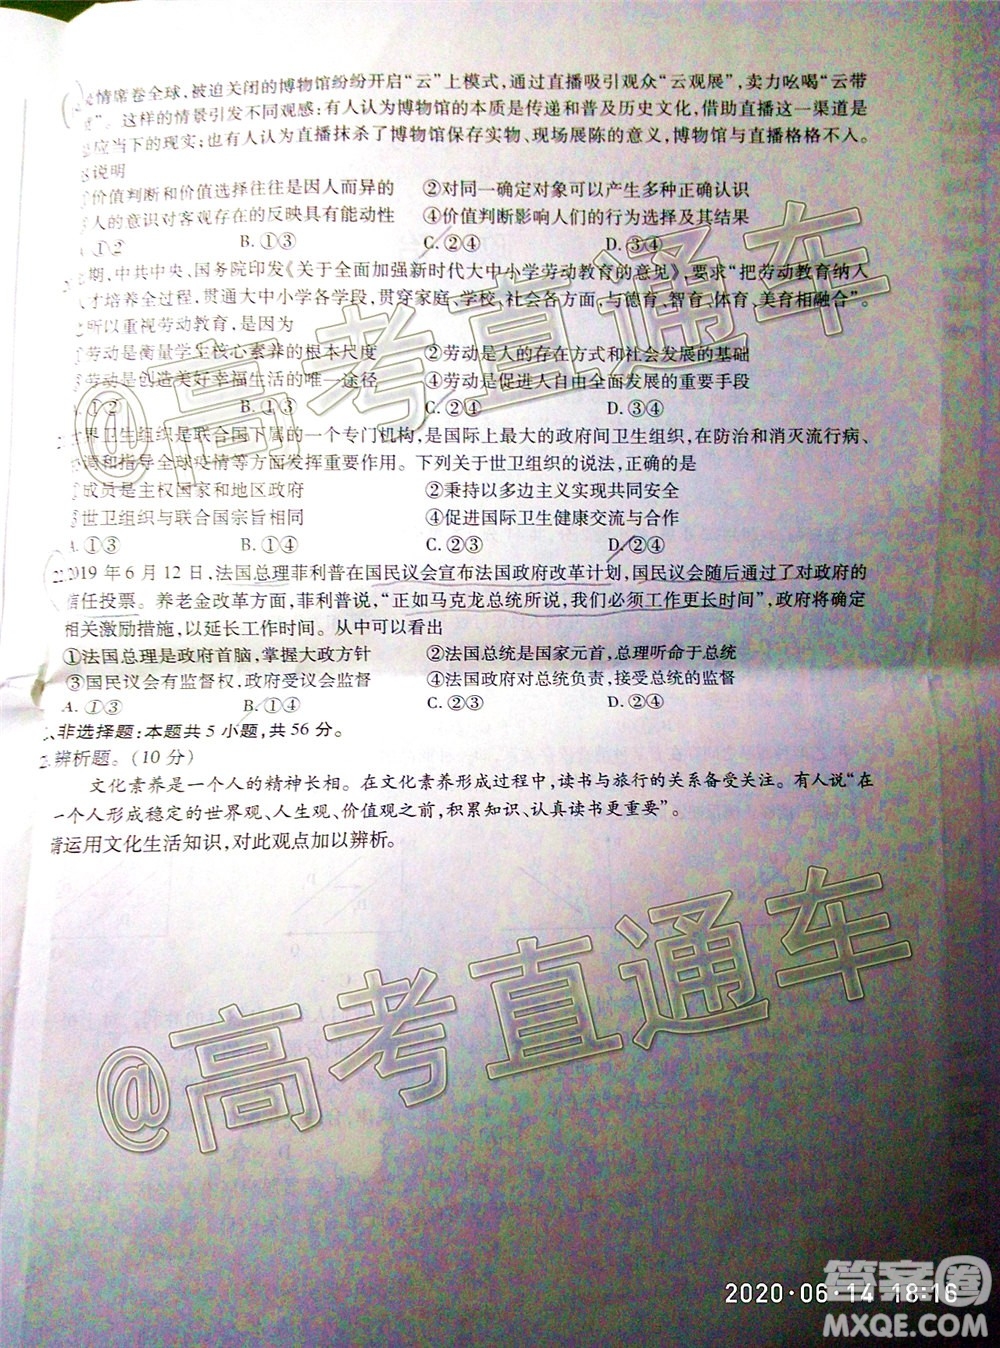 疫情席卷全球，被迫关闭的博物馆纷纷开启“云”上模式，通过直播吸引观众“云观展”，卖力吆喝“云带
”。这样的情景引发不同观感：有人认为博物馆的本质是传递和普及历史文化，借助直播这一渠道是
应当下的现实；也有人认为直播抹杀了博物馆保存实物、现场展陈的意义，博物馆与直播格格不入。
说明
价值判断和价值选择往往是因人而异的 ②对同一确定对象可以产生多种正确认识
人的意识对客观存在的反映具有能动性 ④价值判断影响人们的行为选择及其结果
A. ①② B. ①③ C. ②④ D. ③④
期，中共中央、国务院印发《关于全面加强新时代大中小学劳动教育的意见》，要求“把劳动教育纳入
人才培养全过程，贯通大中小学各学段，贯穿家庭、学校、社会各方面，与德育、智育、体育、美育相融合”。
所以重视劳动教育，是因为
劳动是衡量学生核心素养的根本尺度 ②劳动是人的存在方式和社会发展的基础
劳动是创造美好幸福生活的唯一途径 ④劳动是促进人自由全面发展的重要手段
A. ①② B. ①③ C. ②④ D. ③④
世界卫生组织是联合国下属的一个专门机构，是国际上最大的政府间卫生组织，在防治和消灭流行病、
和指导全球疫情等方面发挥重要作用。下列关于世卫组织的说法，正确的是
成员是主权国家和地区政府 ②秉持以多边主义实现共同安全
世卫组织与联合国宗旨相同 ④促进国际卫生健康交流与合作
A. ①③ B. ①④ C. ②③ D. ②④
2019 年 6 月 12 日，法国总理菲利普在国民议会宣布法国政府改革计划，国民议会随后通过了对政府的
信任投票。养老金改革方面，菲利普说，“正如马克龙总统所说，我们必须工作更长时间”，政府将确定
相关激励措施，以延长工作时间。从中可以看出
①法国总理是政府首脑，掌握大政方针 ②法国总统是国家元首，总理听命于总统
③国民议会有监督权，政府受议会监督 ④法国政府对总统负责，接受总统的监督
A. ①③ B. ①④ C. ②③ D. ②④
、非选择题：本题共 5 小题，共 56 分。
辨析题。（10 分）
文化素养是一个人的精神长相。在文化素养形成过程中，读书与旅行的关系备受关注。有人说“在
一个人形成稳定的世界观、人生观、价值观之前，积累知识、认真读书更重要”。
请运用文化生活知识，对此观点加以辨析。
@高考直通车
@高考直通车
2020·06·14 18:16
答案圈
MXQE.COM